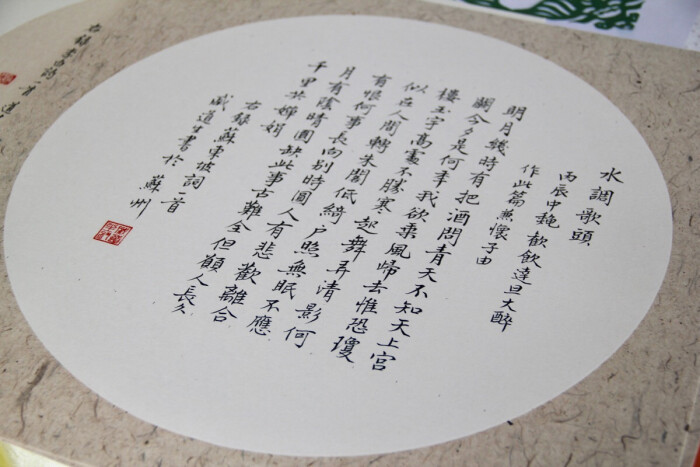 水調歌頭
丙辰中穐歡飲達旦大醉
作此篇兼懷子由
明月幾時有把酒問青天不知天上宮
闕今夕是何年我欲乘風歸去惟恐瓊
樓玉宇高處不勝寒起舞弄清影何
似在人間轉朱閣低綺戶照無眠不應
有恨何事長向別時圓人有悲歡離合
月有陰晴圓缺此事古難全但願人長久
千里共嬋娟
右錄蘇東坡詞一首
盛道生書於蘇州
右錄